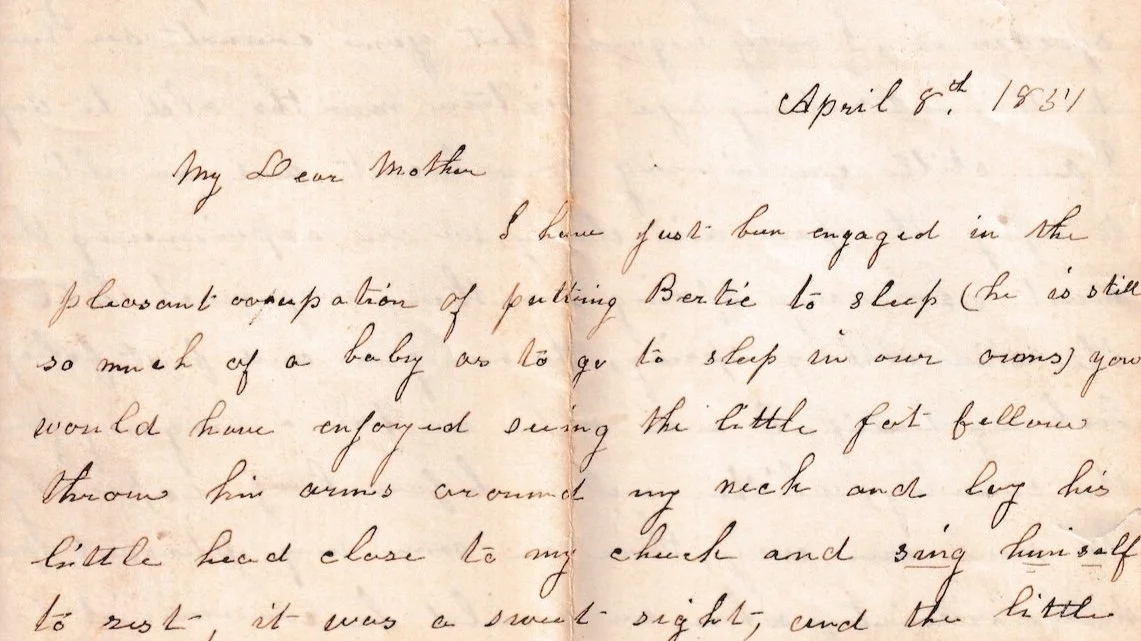 April 8th. 1851
My Dear Mother
I have just been engaged in the
pleasant occupation of putting Bertie to sleep (he is still
so much of a baby as to go to sleep in our arms) you
would have enjoyed seeing the little fat fellow
throw his arms around my neck and lay his
little head close to my cheek and sing himself
to rest, it was a sweet sight, and the little